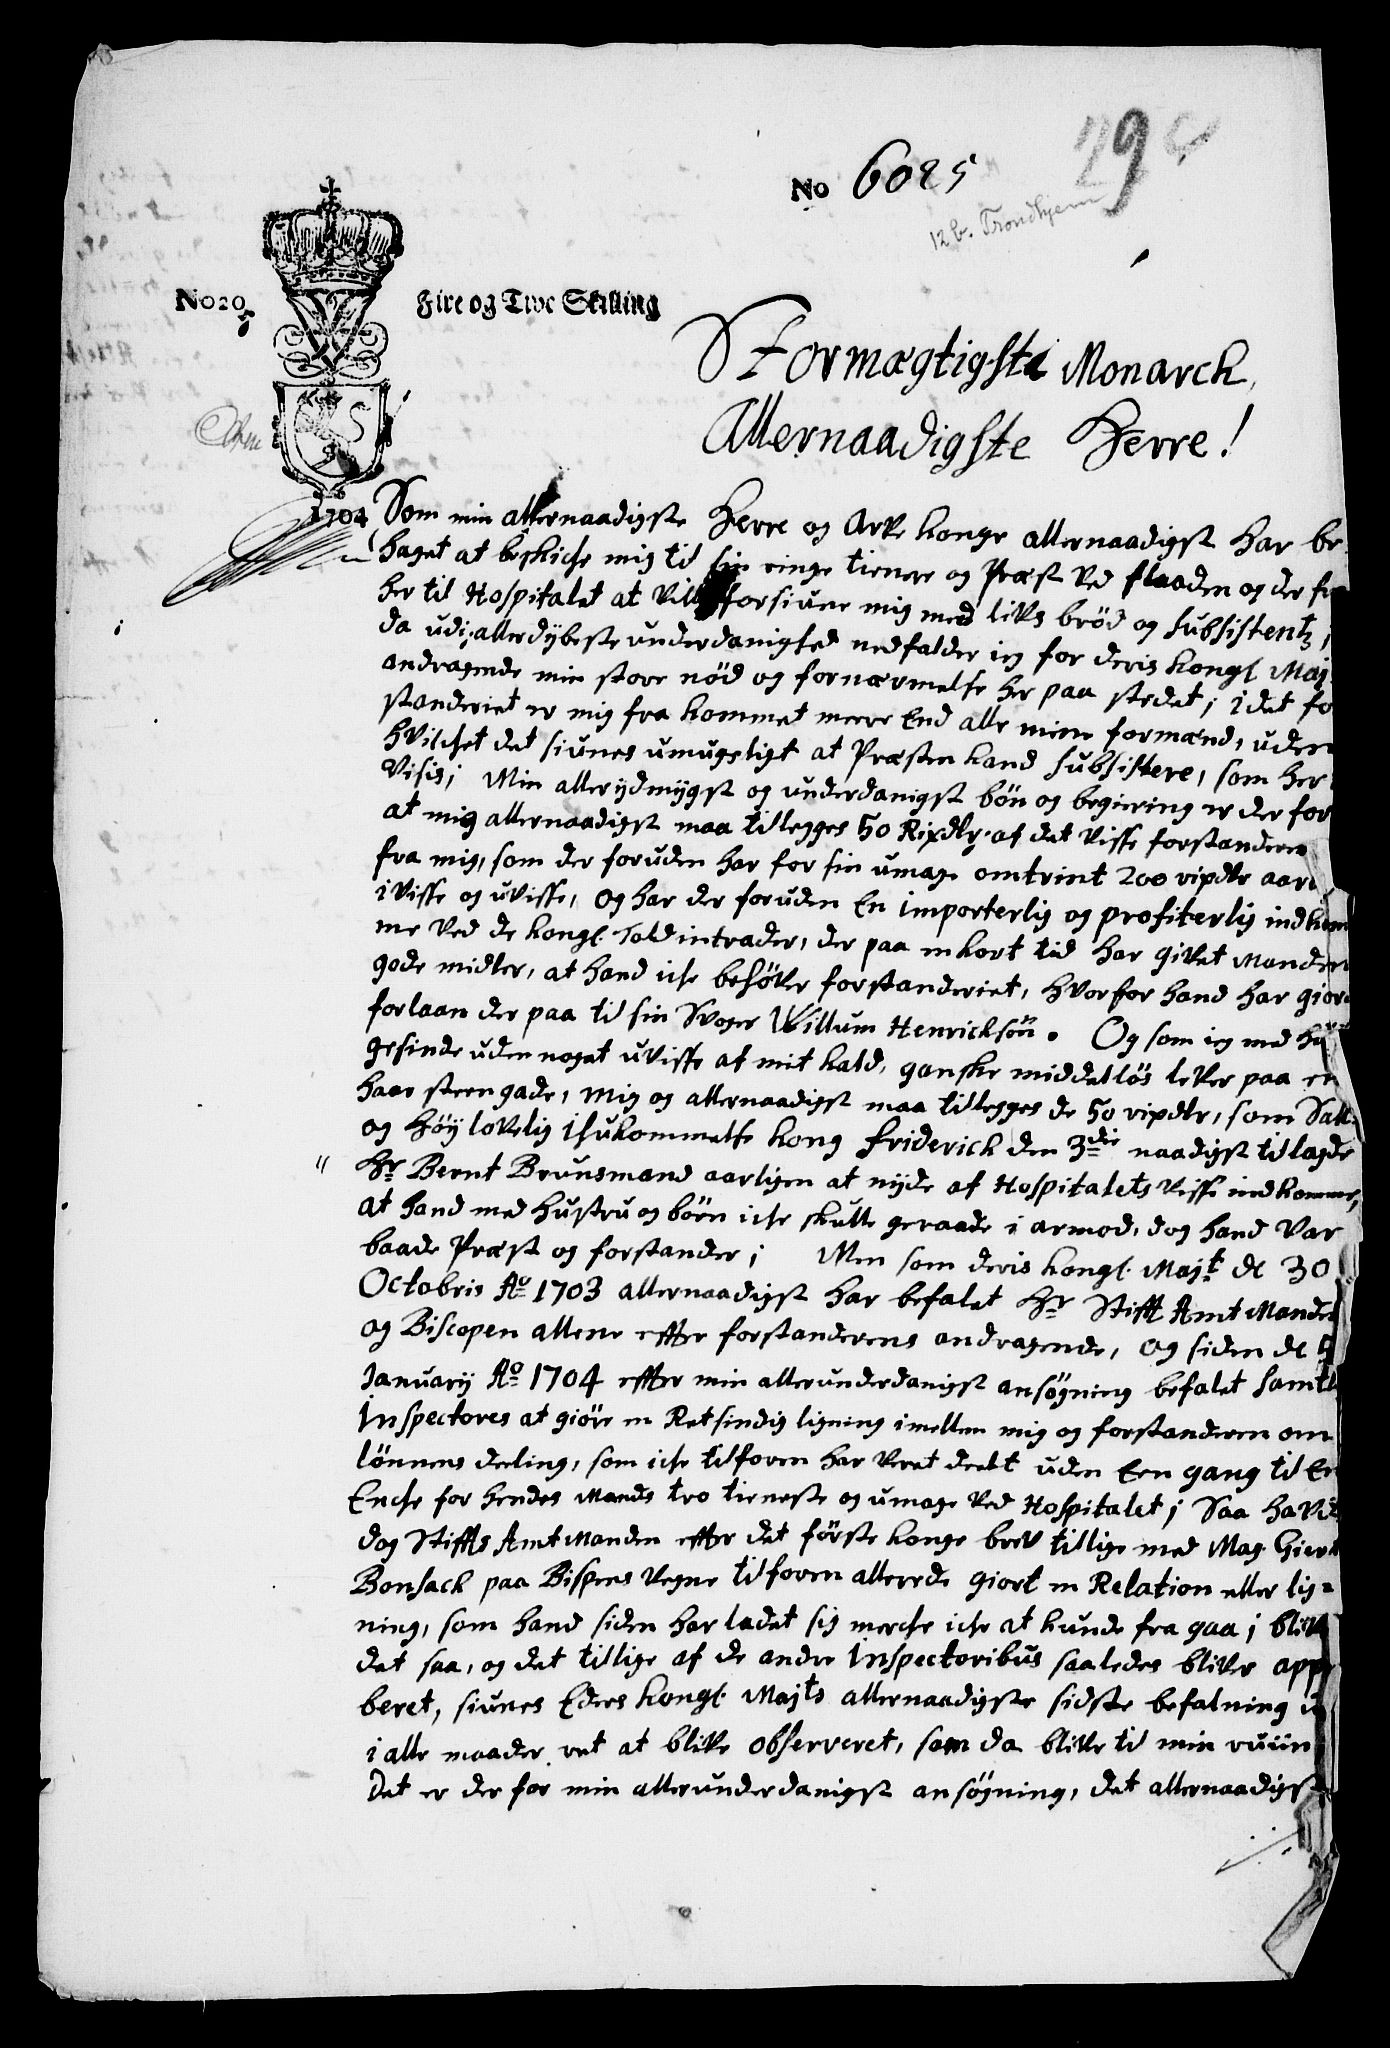 29
No 6025
12 b. Trondhjem
No 20
5
Fire og Tive Skilling
1704
StorMægtigste Monarck,
Allernaadigste Herre!
Som min allernaadigste Herre og Arve Konge allernaadigst har be-
haget at beskiche mig til sin ringe tienere og Præst ved flaaden og der
her til Hospitalet at forsiune mig med livs brød og subsistentz,
da udi allerdybeste underdanighed nedfalder ieg for deris Kongl Maj
andragende min store nöd og fornærmelse her paa stedet; i det
standeriet er mig fra kommet meere End alle mine formænd, uden
hvilchet det siunes umugeligt at Præsten kand subsistere, som her
visis; Min allerydmygst og underdanigst bön og begiering er der for
at mig allernaadigst maa tillegges 50 Rixdlr. af det visse forstanderen
fra mig, som der foruden har for sin umage omtrint 200 rixdlr
i visse og uvisse, og har der foruden En importerlig og profiterlig indkom
me ved de kongl. Told intrader, der paa en kort tid har givet Manden
gode midler, at hand iche behöver forstanderiet, hvorfor hand har giort
forlaan der paa til sin Svoger Willum Henricksön. Og som ieg med
gesinde uden noget uvisse af mit kald, ganske middellös lever paa en
haar steengade, mig og allernaadigst maa tillegges de 50 rixdlr, som Sall.
og Höylovelig ihukommelse Kong Friderich den 3die naadigst tillagde
" Hr Bernt Brunsmand aarligen at nyde af Hospitalets visse indkomme,
at hand med hustru og börn iche skulle geraade i armod, dog hand var
baade Præst og forstander; Men som deris Kongl. Majt de 30
Octobris Ao 1703 allernaadigst har befalet Hr Stifft Amt Manden
og Biscopen allene effter forstanderens andragende, og siden de 5
January Ao 1704 effter min allerunderdanigst ansögning befalet samtl
Inspectores at giöre en Retsindig ligning imellem mig og forstanderen om
lönnens deeling, som iche tilforen har veret deelt uden Een gang til En
Enche for hendes Mands tro tieneste og umage ved Hospitalet; Saa
dog Stiffts Amt Manden effter det förste konge brev tillige med Mag Giert
Bonsack paa Bispens vegne tilforen allerede giort en Relation eller lig-
ning, som hand siden har ladet sig merche iche at kunde fra gaa; bliver
det saa, og det tillige af de andre Inspectoribus saaledes bliver app
beret, siunes Eders Kongl. Majts allernaadigste sidste befalning
i alle maader ret at blive observeret, som da blive til min ruin
Det er der for min allerunderdanigst ansögning, det allernaadigst